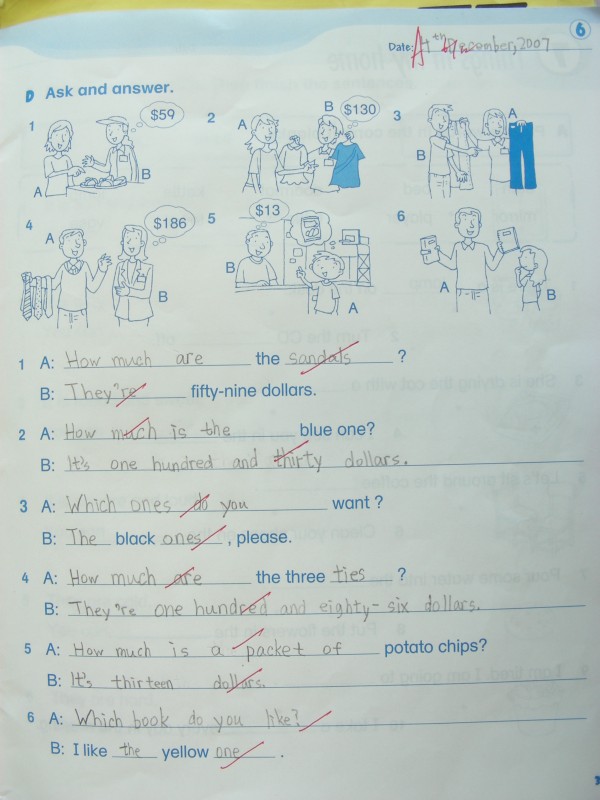 6
Date: 4th December, 2007
D Ask and answer.
1 $59 A B
2 A B $130
3 A B
4 A $186 B
5 $13 B A
6 A B
1 A: How much are the sandals ?
B: They're fifty-nine dollars.
2 A: How much is the blue one?
B: It's one hundred and thirty dollars.
3 A: Which ones do you want ?
B: The black ones , please.
4 A: How much are the three ties ?
B: They're one hundred and eighty-six dollars.
5 A: How much is a packet of potato chips?
B: It's thirteen dollars.
6 A: Which book do you like?
B: I like the yellow one .